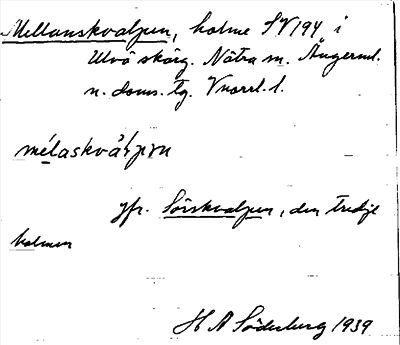 Mellanskvalpen, holme SV 194 i
Ulvö skärg. Nätra sn. Ångerml.
n. doms. tg. Vnorrl. l.
mélaskvàļpɘn
jfr. Sörskvalpen, den tredje
holmen
H A Söderberg 1939